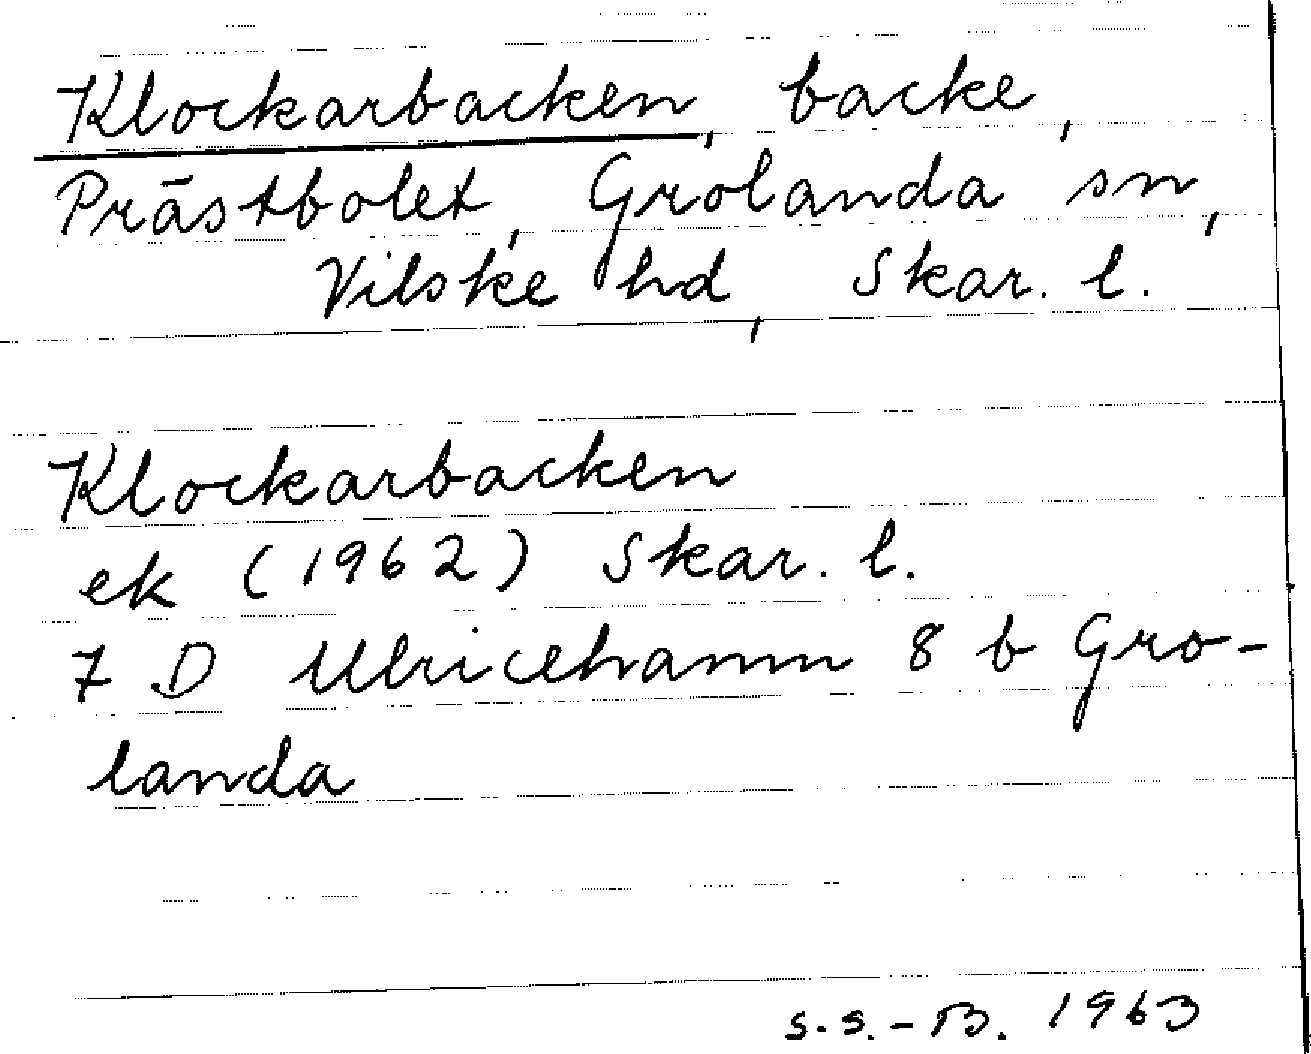 Klockarbacken, backe,
Prästbolet, Grolanda sn,
Vilske hd, Skar. l.
Klockarbacken
ek (1962) Skar. l.
7 D Ulricehamn 8 b Gro-
landa
S.S.-B. 1963